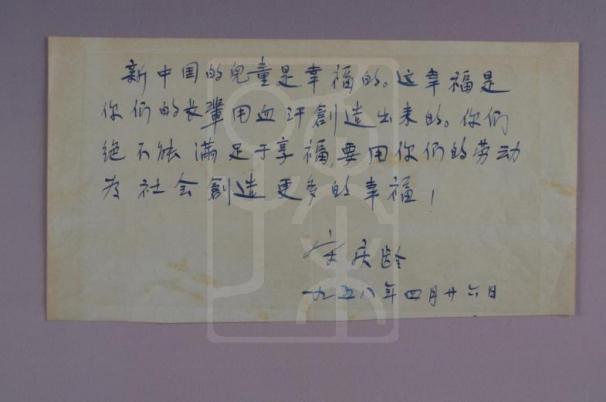 新中国的兒童是幸福的。这幸福是
你们的长輩用血汗創造出来的。你们
绝不能满足于享福，要用你们的劳动
为社会創造更多的幸福！
宋庆龄
一九五八年四月廿六日